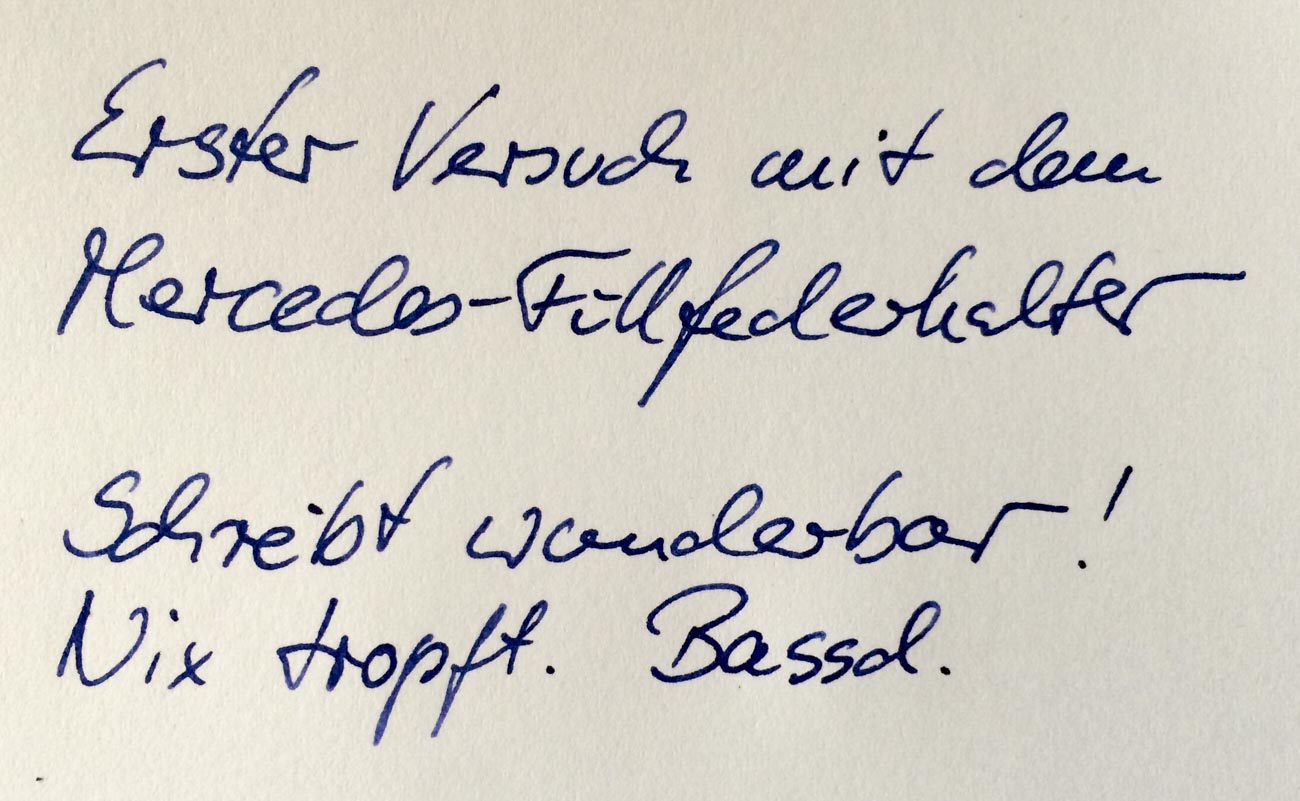 Erster Versuch mit dem
Mercedes-Füllfederhalter
Schreibt wunderbar!
Nix tropft. Bassd.